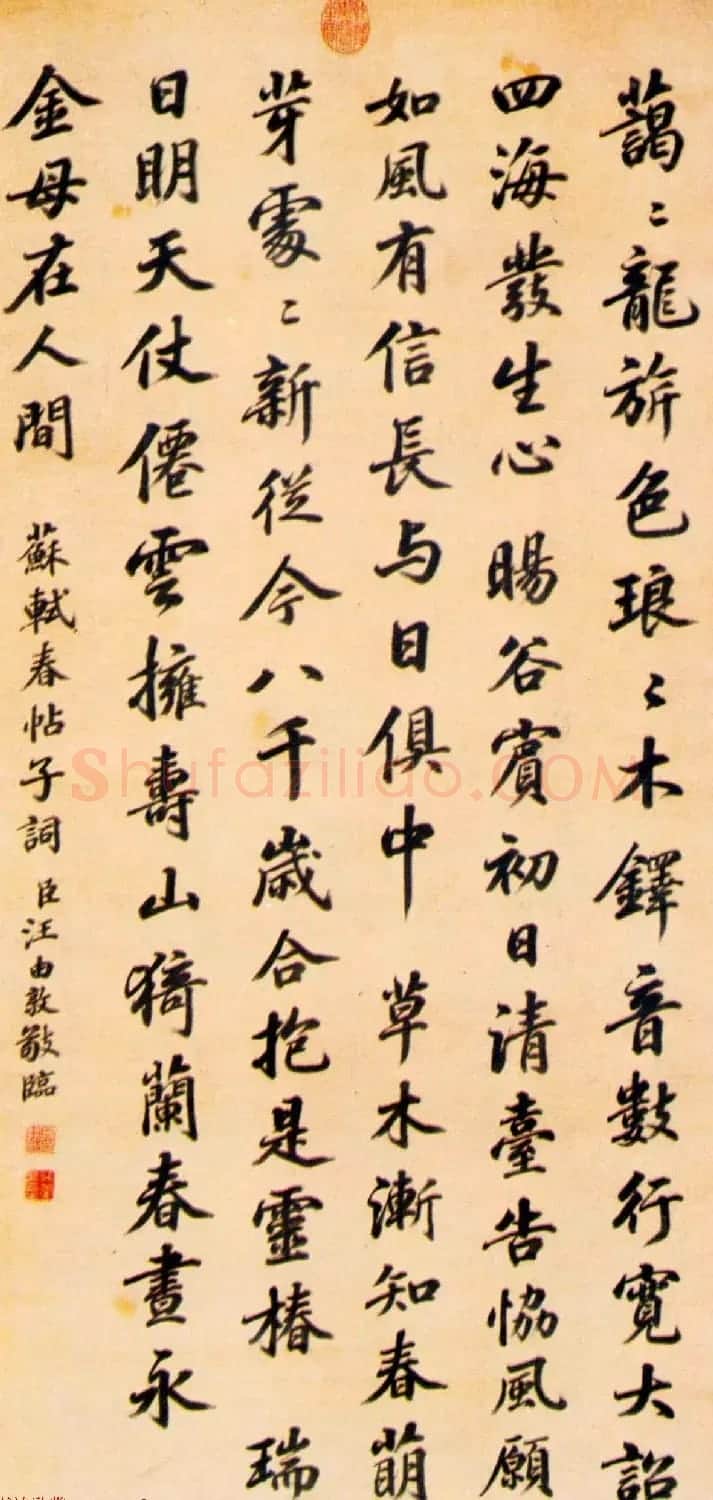 藹〻龍旂色琅〻木鐸音數行寬大詔
四海發生心 暘谷賓初日清臺告協風願
如風有信長与日俱中 草木漸知春萌
芽處〻新從今八千歲合抱是靈椿 瑞
日明天仗僊雲擁壽山猗蘭春晝永
金母在人間
蘇軾春帖子詞 臣汪由敦敬臨
Shufaziliao.COM